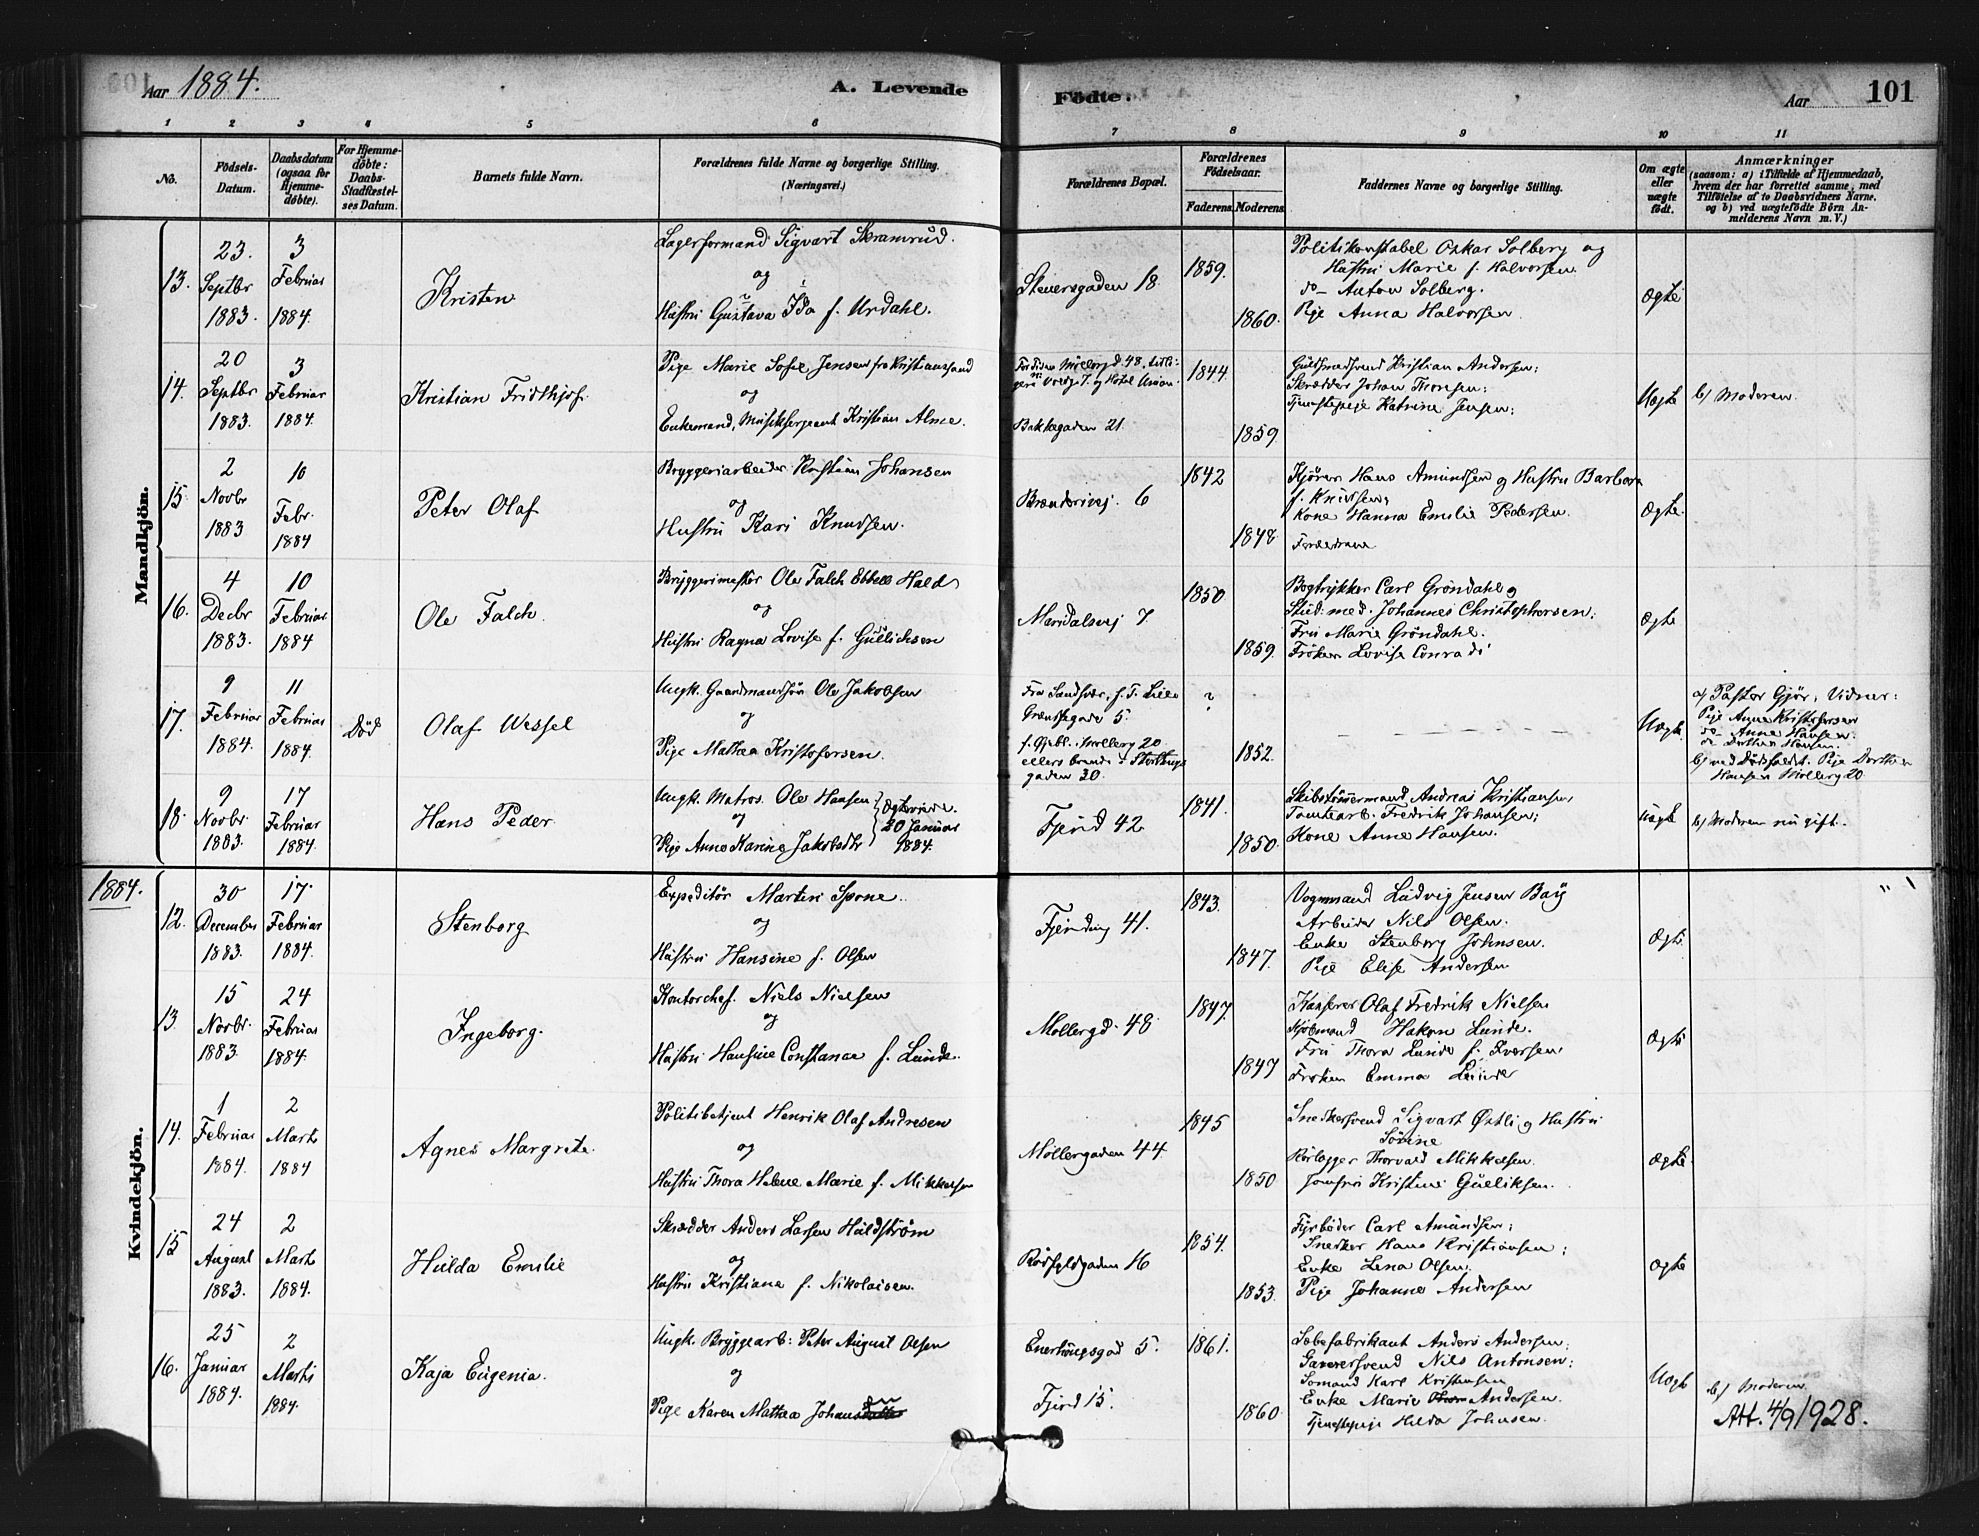 Aar 1884.
A. Levende
Fødte.
Aar
101
1
2
3
4
5
6
7
8
9
10
11
No.
Fødsels-
Datum.
Daabsdatum
(ogsaa for
Hjemme-
døbte).
For Hjemme-
døbte:
Daabs-
Stadfæstel-
ses Datum.
Barnets fulde Navn.
Forældrenes fulde Navne og borgerlige Stilling.
(Næringsvei.)
Forældrenes Bopæl.
Forældrenes
Fødselsaar.
Faderens.
Moderens.
Faddernes Navne og borgerlige Stilling.
Om ægte
eller
uægte
født.
Anmærkninger
(saasom: a) i Tilfælde af Hjemmedaab,
hvem der har forrettet samme, med
Tilføielse af to Daabsvidners Navne.
og b) ved uægtefødte Børn An-
melderens Navn m. V.)
Mandkjön.
13.
23.
Septbr
1883.
3
Februar
1884.
Kristen
Lagerformand Sigvart Skramrud.
og
Hustru Gustava Ida f. Urdahl.
Steuersgaden 18
1859.
1860.
Politikonstabel Oskar Solberg og
Hustru Marie f. Halvorsen.
do Anton Solberg.
Pige Anna Halvorsen.
Ægte
14.
20
Septbr
1883.
3
Februar
1884.
Kristian Fridthjof.
Pige Marie Sofie Jensen fra Kristianssand
og
Enkemand, Musiksergeant Kristian Alme.
Hotel Union.
Bakkegaden 21.
1844.
1859.
Guldsmedsvend Kristian Andersen;
Skrædder Johan Thomsen;
Tjenestepige Katrine Jensen;
Uægte
b) Moderen.
15
2
Novbr
1883
10
Febr.
1884
Peter Olaf
Bryggeriarbeider Kristian Johansen
og
Hustru Kari Knudsen.
Brænderivej. 6
1842
1848
Kjører Hans Amundsen og Hustru Barbara
f. Knutsen;
Kone Hanna Emilie Pedersen.
Forældrene
Ægte.
16.
4
Decbr
1883.
10
Februar
1884
Ole Falch.
Bryggerimester Ole Falch Ebbell Hald
og
Hustru Ragna Lovise f. Gullichsen
Maridalsvej 7
1850
1859
Bogtrykker Carl Grøndahl og
Stud. med. Johannes Christophersen;
Fru Marie Grøndahl.
Frøken Lovise Conradi
Ægte
17.
9
Februar
1884.
11
Februar
1884.
Død
Olaf Wessel
Ungk. Gaardmandsøn Ole Jakobsen
og
Pige Mathea Kristofersen.
Fra Sandsvær, f. T.
Grændsegade 5.
Møllerg 20
Storthings
gaden 30.
?
1852.
Uægte.
a) Pastor Gjør, Vidner:
Pige Anne Kristofersen
do Anne Hansen.
do Dorthea Hansen.
b) ved Dødsfaldet. Pige Dorthea
Hansen Møllerg 20
18.
9
Novbr.
1883
17
Februar
1884.
Hans Peder.
Ungk. Matros. Ole Hansen
og
Pige Anne Karine Jakobsdtr
Ægteviede.
20 Januar
1884.
Fjerd 42
1841.
1850.
Skibstømmermand Andreas Kristiansen;
Tomtearb. Fredrik Johansen;
Kone Anne Hansen.
Uægte
b) Moderen nu gift.
1884.
Kvindekjön.
12.
30
December
1883.
17.
Februar
1884.
Stenborg
Expeditør Martin Sporne.
og
Hustru Hansine f. Olsen
Fjerding 41.
1843.
1847.
Vognmand Ludvig Jensen Bay
Arbeider Nils Olsen.
Enke Stenborg Johnsen.
Pige Elise Andersen
Ægte.
13
15
Novbr.
1883.
24
Februar
1884.
Ingeborg.
Kontorchef. Niels Nielsen
og
Hustru Hansine Constance f. Lunde.
Møllergd. 48
1847.
1847
Kasserer Olaf Fredrik Nielsen
Kjøbmand Hakon Lunde.
Fru Thora Lunde f. Iversen,
Frøken Emma Lunde
Ægte
14.
1
Februar
1884.
2
Marts
1884
Agnes Margrete.
Politibetjent Henrik Olaf Andresen
og
Hustru Thora Helene Marie f. Mikkelsen
Møllergaden 44
1845
1850
Snedkersvend Sigvart Østli og Hustru
Søvine
Rørlægger Thorvald Mikkelsen.
Jomfru Kristine Gulliksen.
Ægte
15
24
August
1883.
2
Marts
1884.
Hulda Emilie
Skrædder Anders Larsen Huldstrøm
og
Hustru Kristiana f. Nikolaisen.
Rørfyldgaden 16
1854.
1853.
Fyrbøder Carl Amundsen;
Snedker Hans Kristiansen;
Enke Lena Olsen;
Pige Johanne Andersen
Ægte
16.
25
Januar
1884.
2
Marts
1884.
Kaja Eugenia.
Ungk. Bryggearb: Peter August Olsen
og
Pige Karen Mathea Johansdatter
Enerhougsgad 5.
Fjerd 15.
1861.
1860
Sæbefabrikant Anders Andersen;
Garversvend Nils Antonsen;
Sømand Karl Kristensen
Enke Marie Andersen.
Tjenestepige Hilda Johnsen.
Uægte
b) Moderen.
Att. 4/9 1928.